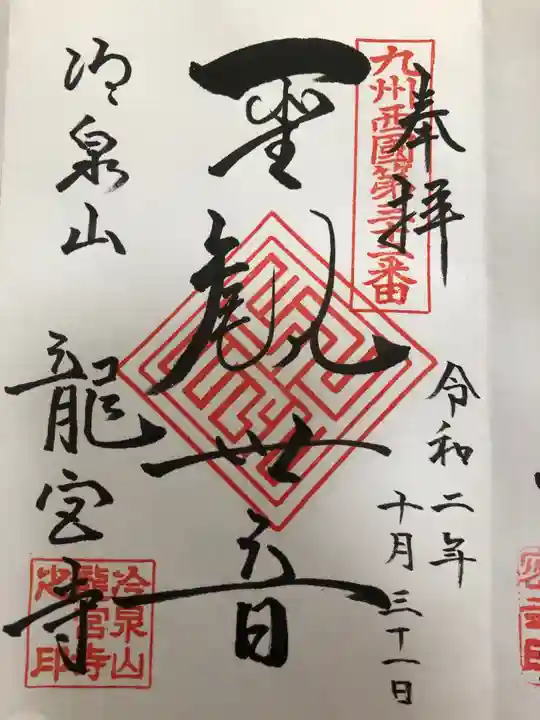 奉拝
九州西國第三十二番
令和二年
十月三十一日
聖観世音
冷泉山 龍宮寺
冷泉山
龍宮寺
印